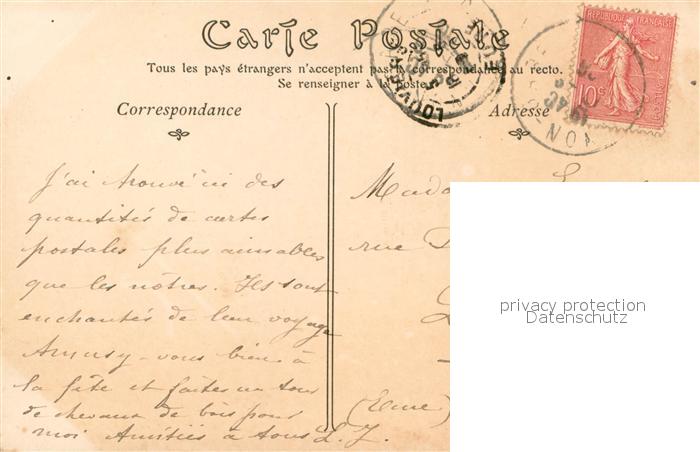 Carte Postale
Tous les pays étrangers n'acceptent pas la correspondance au recto.
Se renseigner à la poste.
Correspondance
Adresse
REPUBLIQUE FRANÇAISE
10c
LOUVIERS
EURE
J'ai trouvé ici des
quantités de cartes
postales plus aimables
que les nôtres. Ils sont
enchantés de leur voyage
Amusez-vous bien à
la fête et faites un tour
de chevaux de bois pour
moi Amitiés à tous L. J.
Mada
rue
(Eure)
privacy protection
Datenschutz